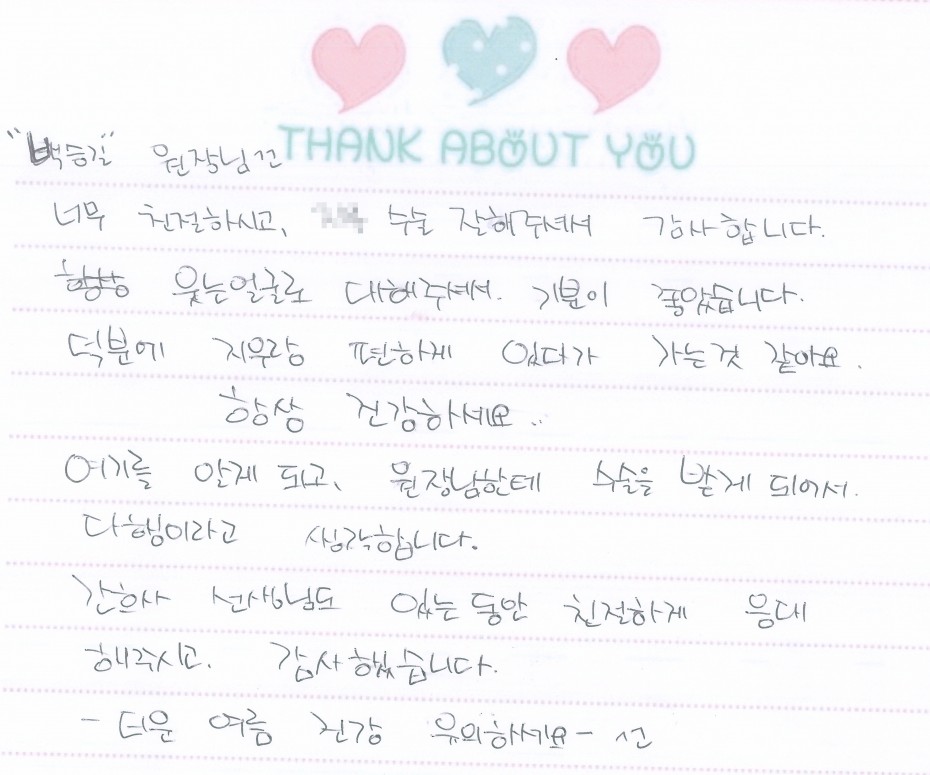 THANK ABOUT YOU
"백승길" 원장님껀
너무 친절하시고, 수술 잘해주셔서 감사합니다.
항상 웃는얼굴로 대해주셔서. 기분이 좋았습니다.
덕분에 지우랑 편하게 있다가 가는것 같아요.
항상 건강하세요..
여기를 알게 되고, 원장님한테 수술을 받게 되어서.
다행이라고 생각합니다.
간호사 선생님도 있는 동안 친절하게 응대
해주시고. 감사했습니다.
- 더운 여름 건강 유의하세요 - 선